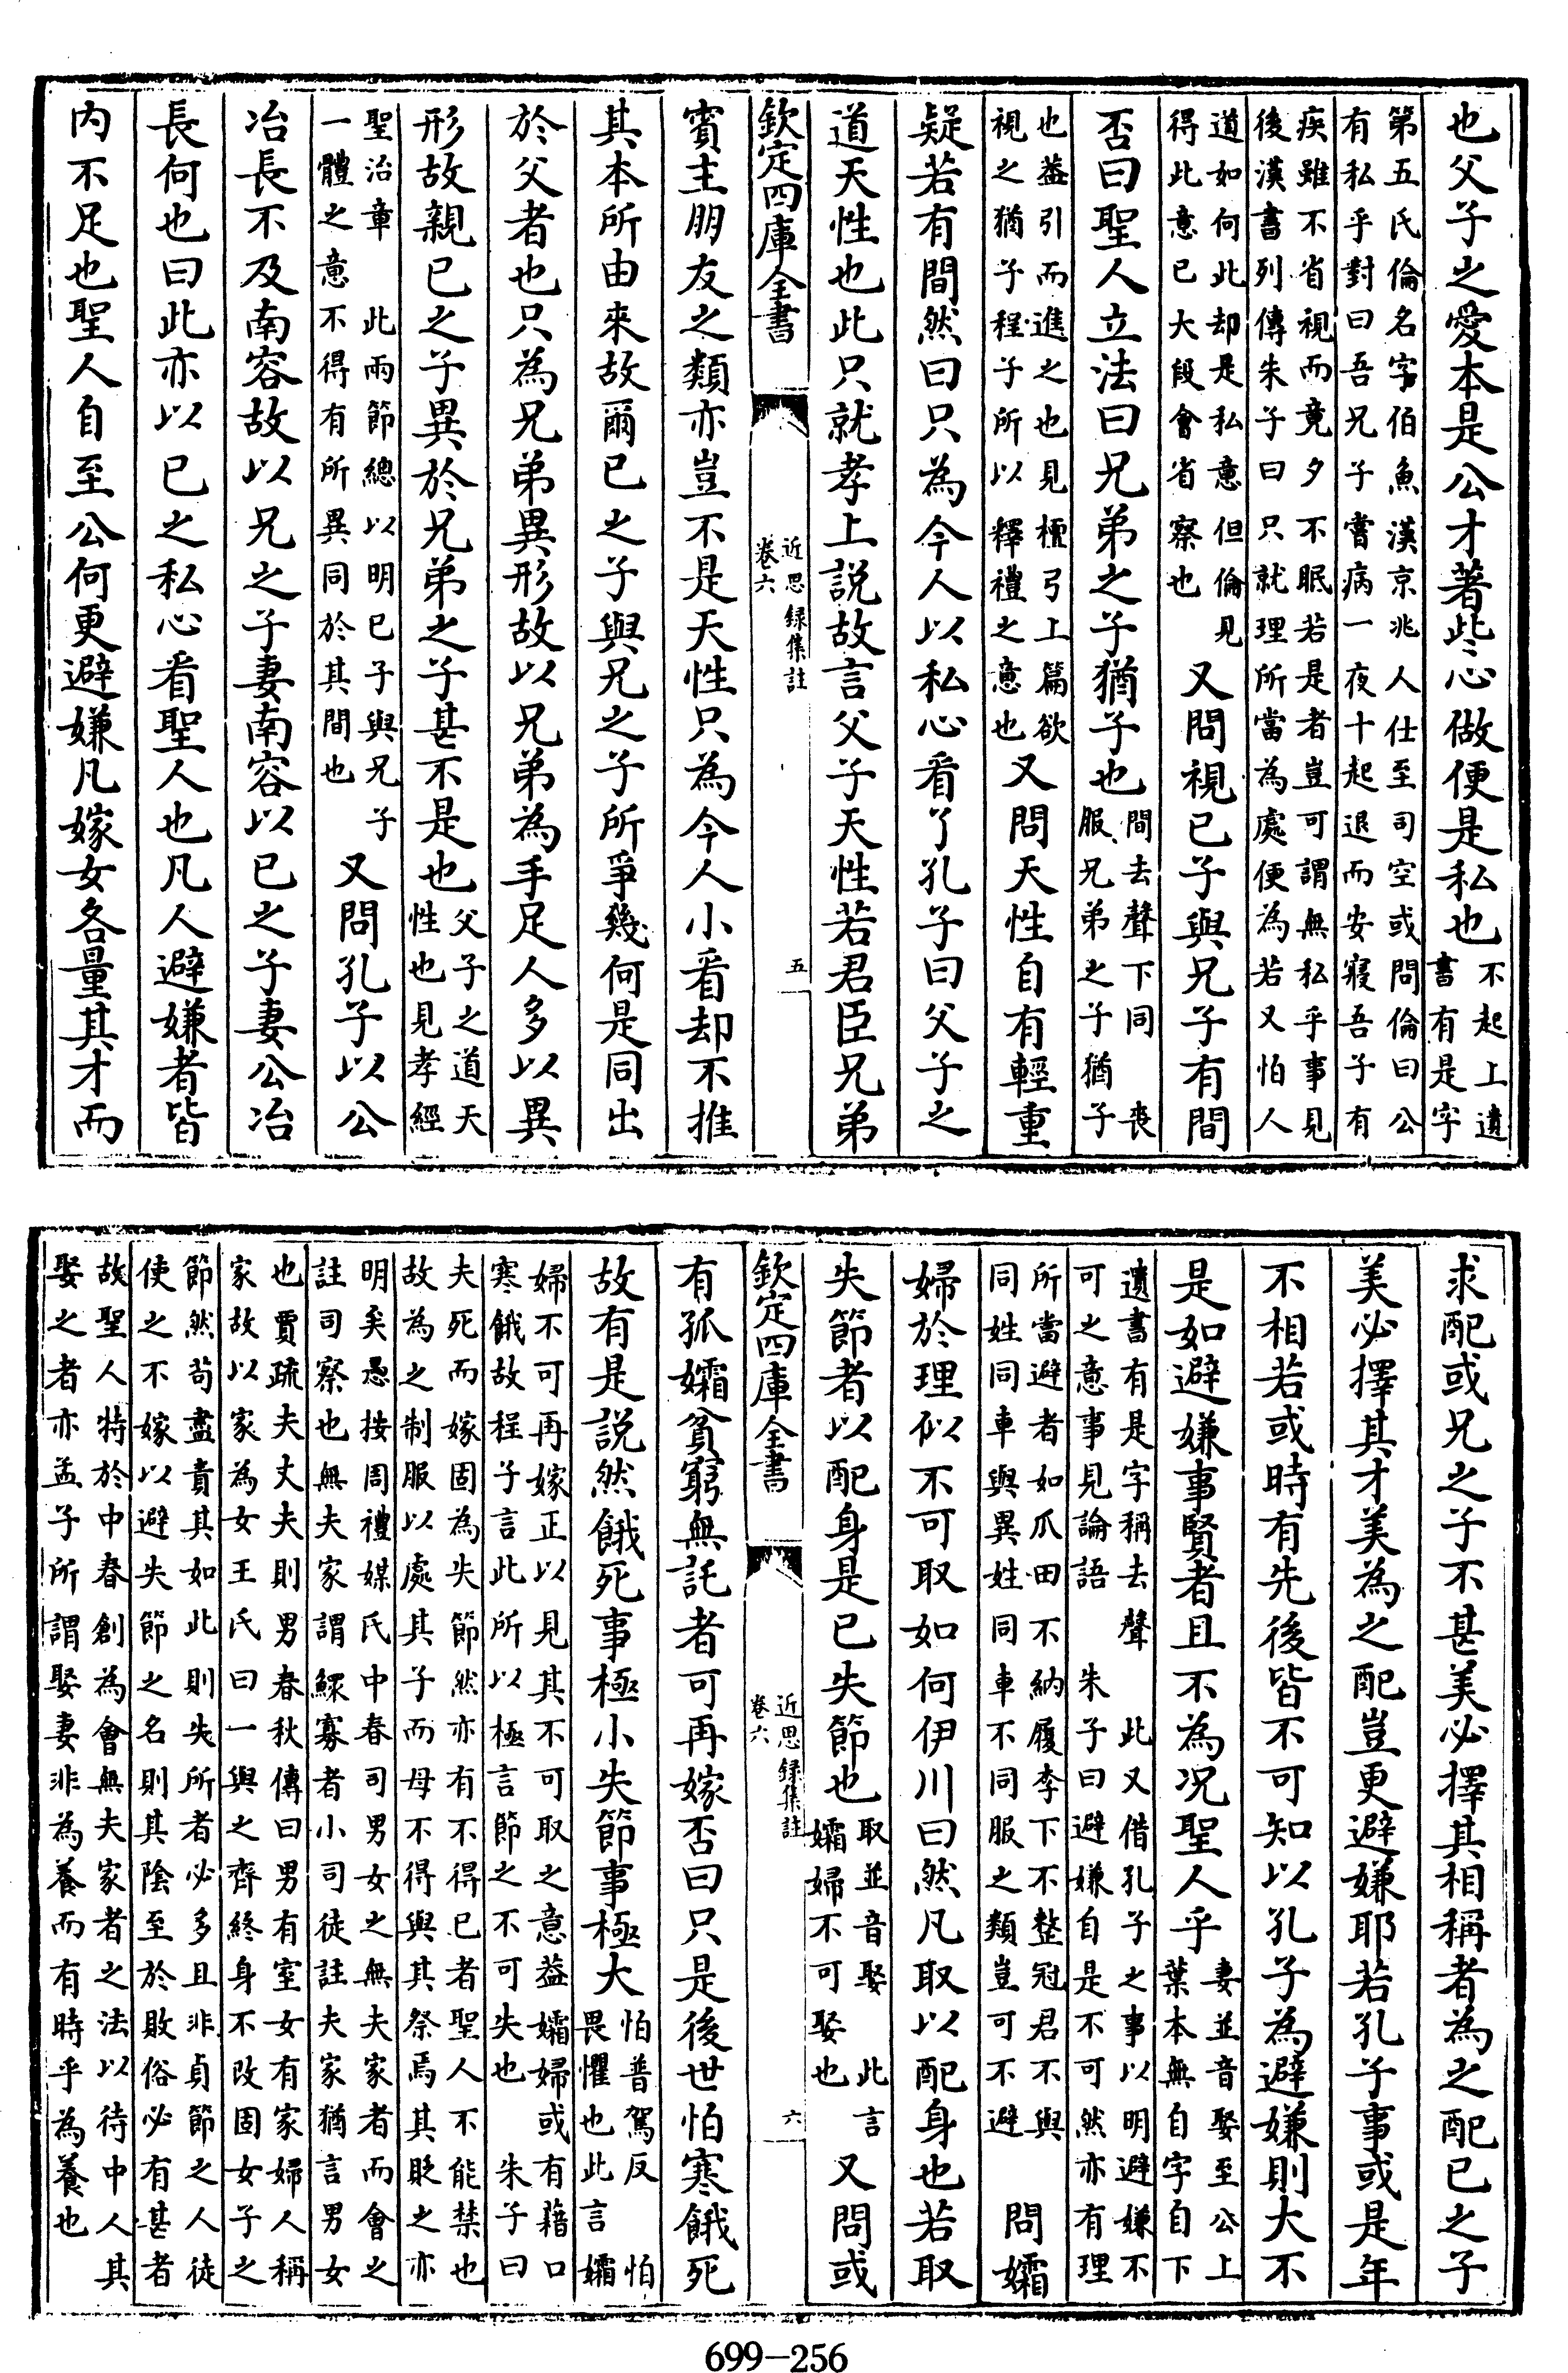 也父子之愛本是公才著些心做便是私也不起上遺書有是字
第五氏倫名字伯魚漢京兆人仕至司空或問倫曰公有私乎對曰吾兄子嘗病一夜十起退而安寢吾子有
疾雖不省視而竟夕不眠若是者豈可謂無私乎事見後漢書列傳朱子曰只就理所當為處便為若又怕人
道如何此却是私意但倫見得此意已大段會省察也又問視已子與兄子有間
否曰聖人立法曰兄弟之子猶子也間去聲下同喪服兄弟之子猶子
也葢引而進之也見檀弓上篇欲視之猶子程子所以釋禮之意也又問天性自有輕重
疑若有間然曰只為今人以私心看了孔子曰父子之
道天性也此只就孝上説故言父子天性若君臣兄弟
欽定四庫全書
近思録集註
卷六
五
賓主朋友之類亦豈不是天性只為今人小看却不推
其本所由來故爾已之子與兄之子所爭幾何是同出
於父者也只為兄弟異形故以兄弟為手足人多以異
形故親已之子異於兄弟之子甚不是也父子之道天性也見孝經
聖治章此兩節總以明已子與兄子一體之意不得有所異同於其間也又問孔子以公
冶長不及南容故以兄之子妻南容以已之子妻公冶
長何也曰此亦以已之私心看聖人也凡人避嫌者皆
内不足也聖人自至公何更避嫌凡嫁女各量其才而
求配或兄之子不甚美必擇其相稱者為之配已之子
美必擇其才美為之配豈更避嫌耶若孔子事或是年
不相若或時有先後皆不可知以孔子為避嫌則大不
是如避嫌事賢者且不為况聖人乎妻並音娶至公上葉本無自字自下
遺書有是字稱去聲此又借孔子之事以明避嫌不可之意事見論語朱子曰避嫌自是不可然亦有理
所當避者如瓜田不納履李下不整冠君不與同姓同車與異姓同車不同服之類豈可不避問孀
婦於理似不可取如何伊川曰然凡取以配身也若取
失節者以配身是已失節也取並音娶此言孀婦不可娶也又問或
欽定四庫全書
近思録集註
卷六
六
有孤孀貧窮無託者可再嫁否曰只是後世怕寒餓死
故有是説然餓死事極小失節事極大怕普駕反怕畏懼也此言孀
婦不可再嫁正以見其不可取之意葢孀婦或有藉口寒餓故程子言此所以極言節之不可失也朱子曰
夫死而嫁固為失節然亦有不得已者聖人不能禁也故為之制服以處其子而母不得與其祭焉其貶之亦
明矣愚按周禮媒氏中春司男女之無夫家者而會之註司察也無夫家謂鰥寡者小司徒註夫家猶言男女
也賈疏夫夫丈夫則男春秋傳曰男有室女有家婦人稱家故以家為女王氏曰一與之齊終身不改固女子之
節然苟盡責其如此則失所者必多且非貞節之人徒使之不嫁以避失節之名則其陰至於敗俗必有甚者
故聖人特於中春創為會無夫家者之法以待中人其娶之者亦孟子所謂娶妻非為養而有時乎為養也
699-256